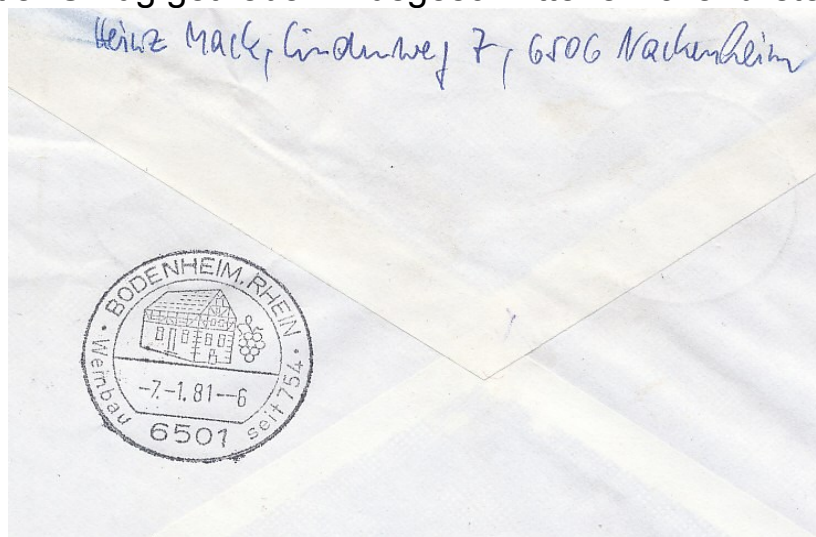 Heinz Mack, Lindenweg 7, 6506 Nackenheim
BODENHEIM, RHEIN
-7.-1.81--6
· Weinbau 6501 seit 754 ·